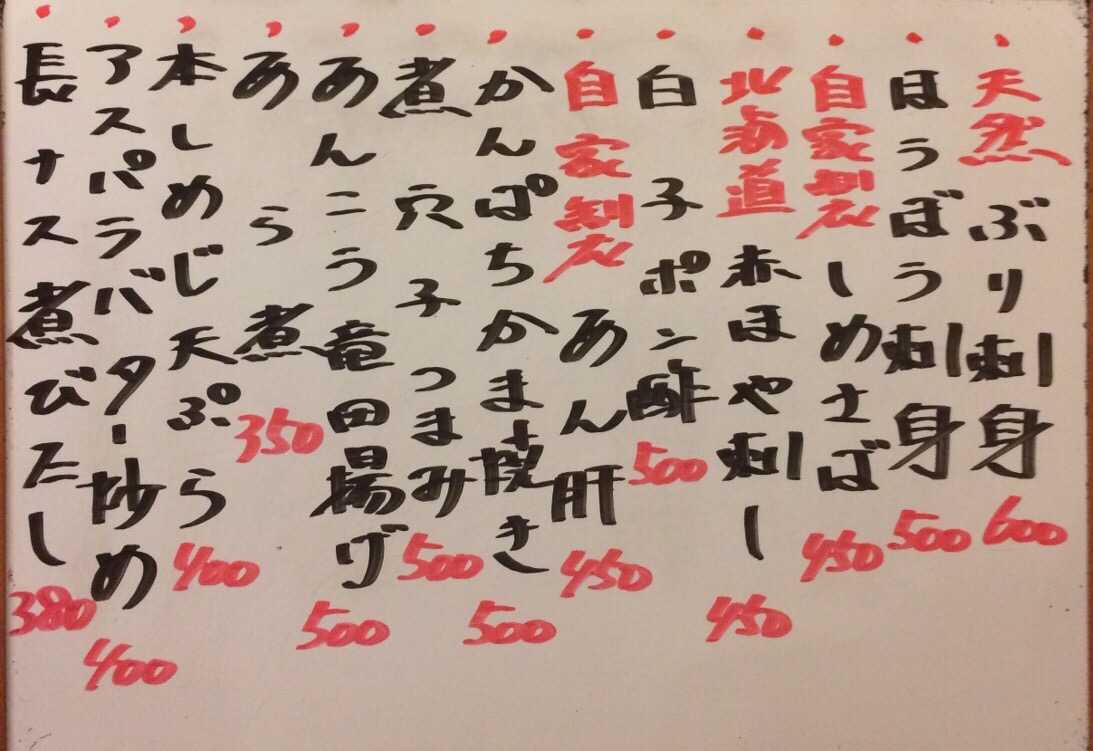 天然ぶり刺身 600
ほうぼう刺身 500
自家製しめさば 450
北海道赤ほや刺し 450
白子ポン酢 500
自家製あん肝 450
かんぱちかま焼き 500
煮穴子つまみ 500
あんこう竜田揚げ 500
あら煮 350
本しめじ天ぷら 400
アスパラバター炒め 400
長ナス煮びたし 380